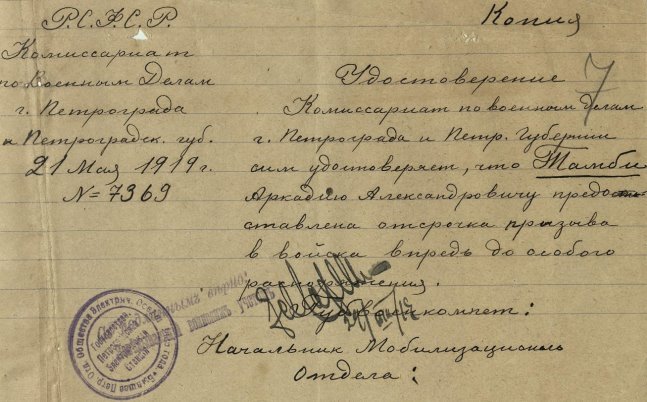 Р.С.Ф.С.Р.
Комиссариат
по Военным Делам
г. Петрограда
и Петроградск. губ.
21 Мая 1919 г.
N=7369
Копия
7
Удостоверение
Комиссариат по военным делам
г. Петрограда и Петр. Губернии
сим удостоверяет, что Тамби
Аркадию Александровичу предо
ставлена отсрочка призыва
в войска впредь до особого
распоряжения.
Начальник Мобилизационн
Отдела: